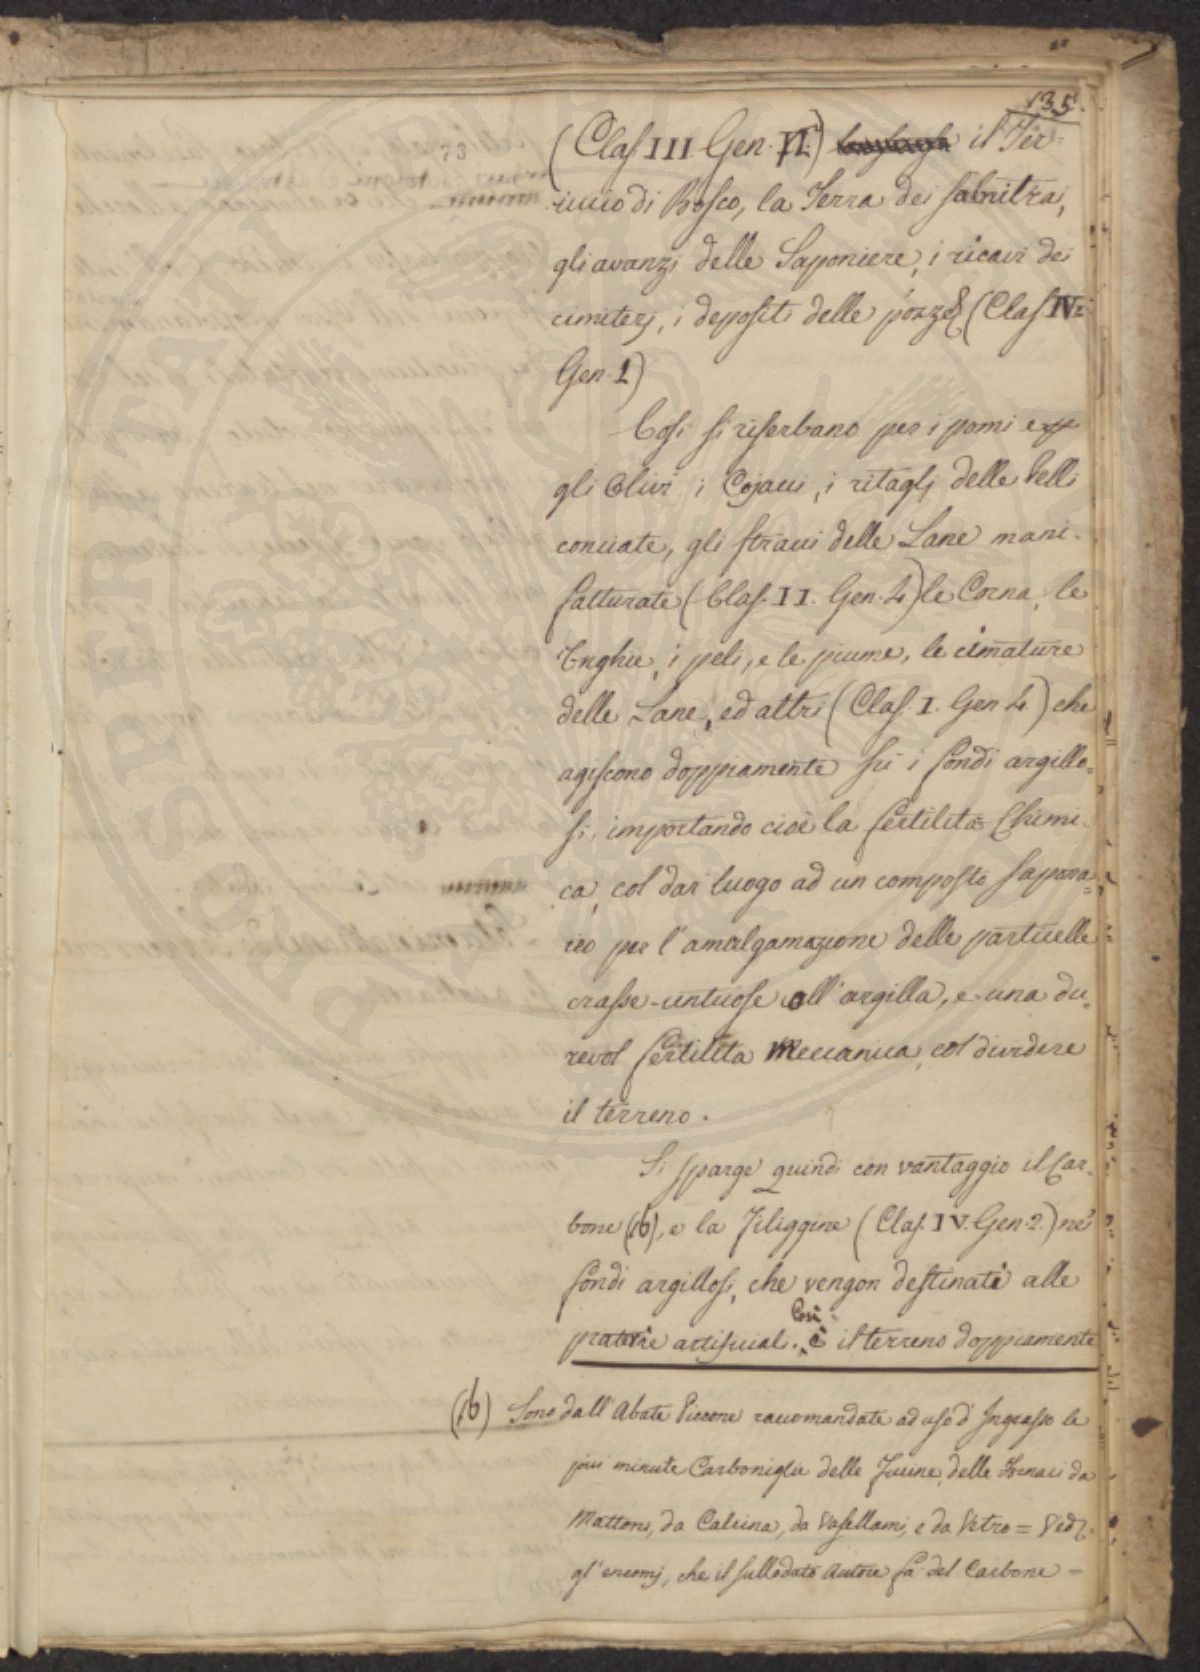 135.
(Clas. III Gen. II.) il Ter-
riccio di Bosco, la Terra dei salnitrai,
gli avanzi delle Saponiere, i ricavi dei
cimiterj, i depositi delle pozze (Clas. IV.
Gen. 1)
Così si riserbano per i pomi e
gli Olivi i Cojacci, i ritaglj delle Pelli
conciate, gli stracci delle Lane mani-
fatturate (Clas. II. Gen. 4) le Corna, le
Unghie, i peli, e le piume, le cimature
delle Lane, ed altri (Clas. I. Gen 4.) che
agiscono doppiamente su i fondi argillo-
si, importando cioè la fertilità Chimi-
ca, col dar luogo ad un composto sapona-
ceo per l'amalgamazione delle particelle
crasse-untuose all'argilla, e una du-
revol fertilità Meccanica, col dividere
il terreno.
Si sparge quindi con vantaggio il Car-
bone (16), e la Filiggine (Clas. IV. Gen. 2.) ne'
fondi argillosi, che vengon destinati alle
Così
praterie artificiali. è il terreno doppiamente
(16) Sono dall'Abate Piccone raccomandate ad uso d'Ingrasso le
più minute Carboniglie delle Fucine, delle Fornaci da
Mattoni, da Calcina, da Vasellami, e da Vetro = Ved.
gl'encomj, che il sullodato Autore fa del Carbone =
PROSPERITATI
73